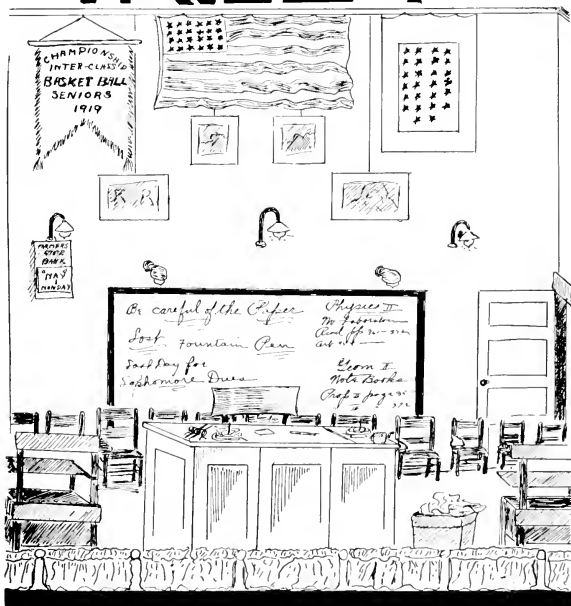 CHAMPIONSHIP
INTER-CLASS
BASKET BALL
SENIORS
1919
FARMERS
STATE
BANK
MAY
MONDAY
Be careful of the Paper
Lost Fountain Pen
Last Day for
Sophomore Dues
Physics II
No Laboratory
Read pp.
Geom II
Note Books
Prop II page